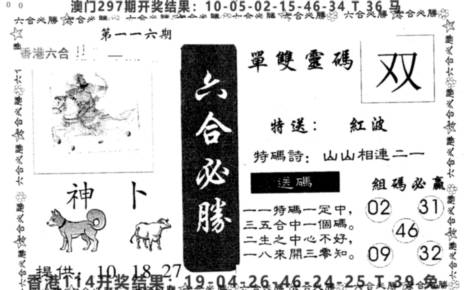 澳门297期开奖结果：10-05-02-15-46-34 T 36 马
第一一六期
香港六合
單雙靈碼
双
特送： 紅波
特碼詩：山山相連二一
六合必勝
送碼
組碼必贏
一一特碼一定中，
三五合中一個碼。
二生之中心不好，
一八來開三零知。
02 31
46
09 32
神卜
提供：10 18 27
香港114开奖结果：19-04-26-46-24-25-T 39 兔